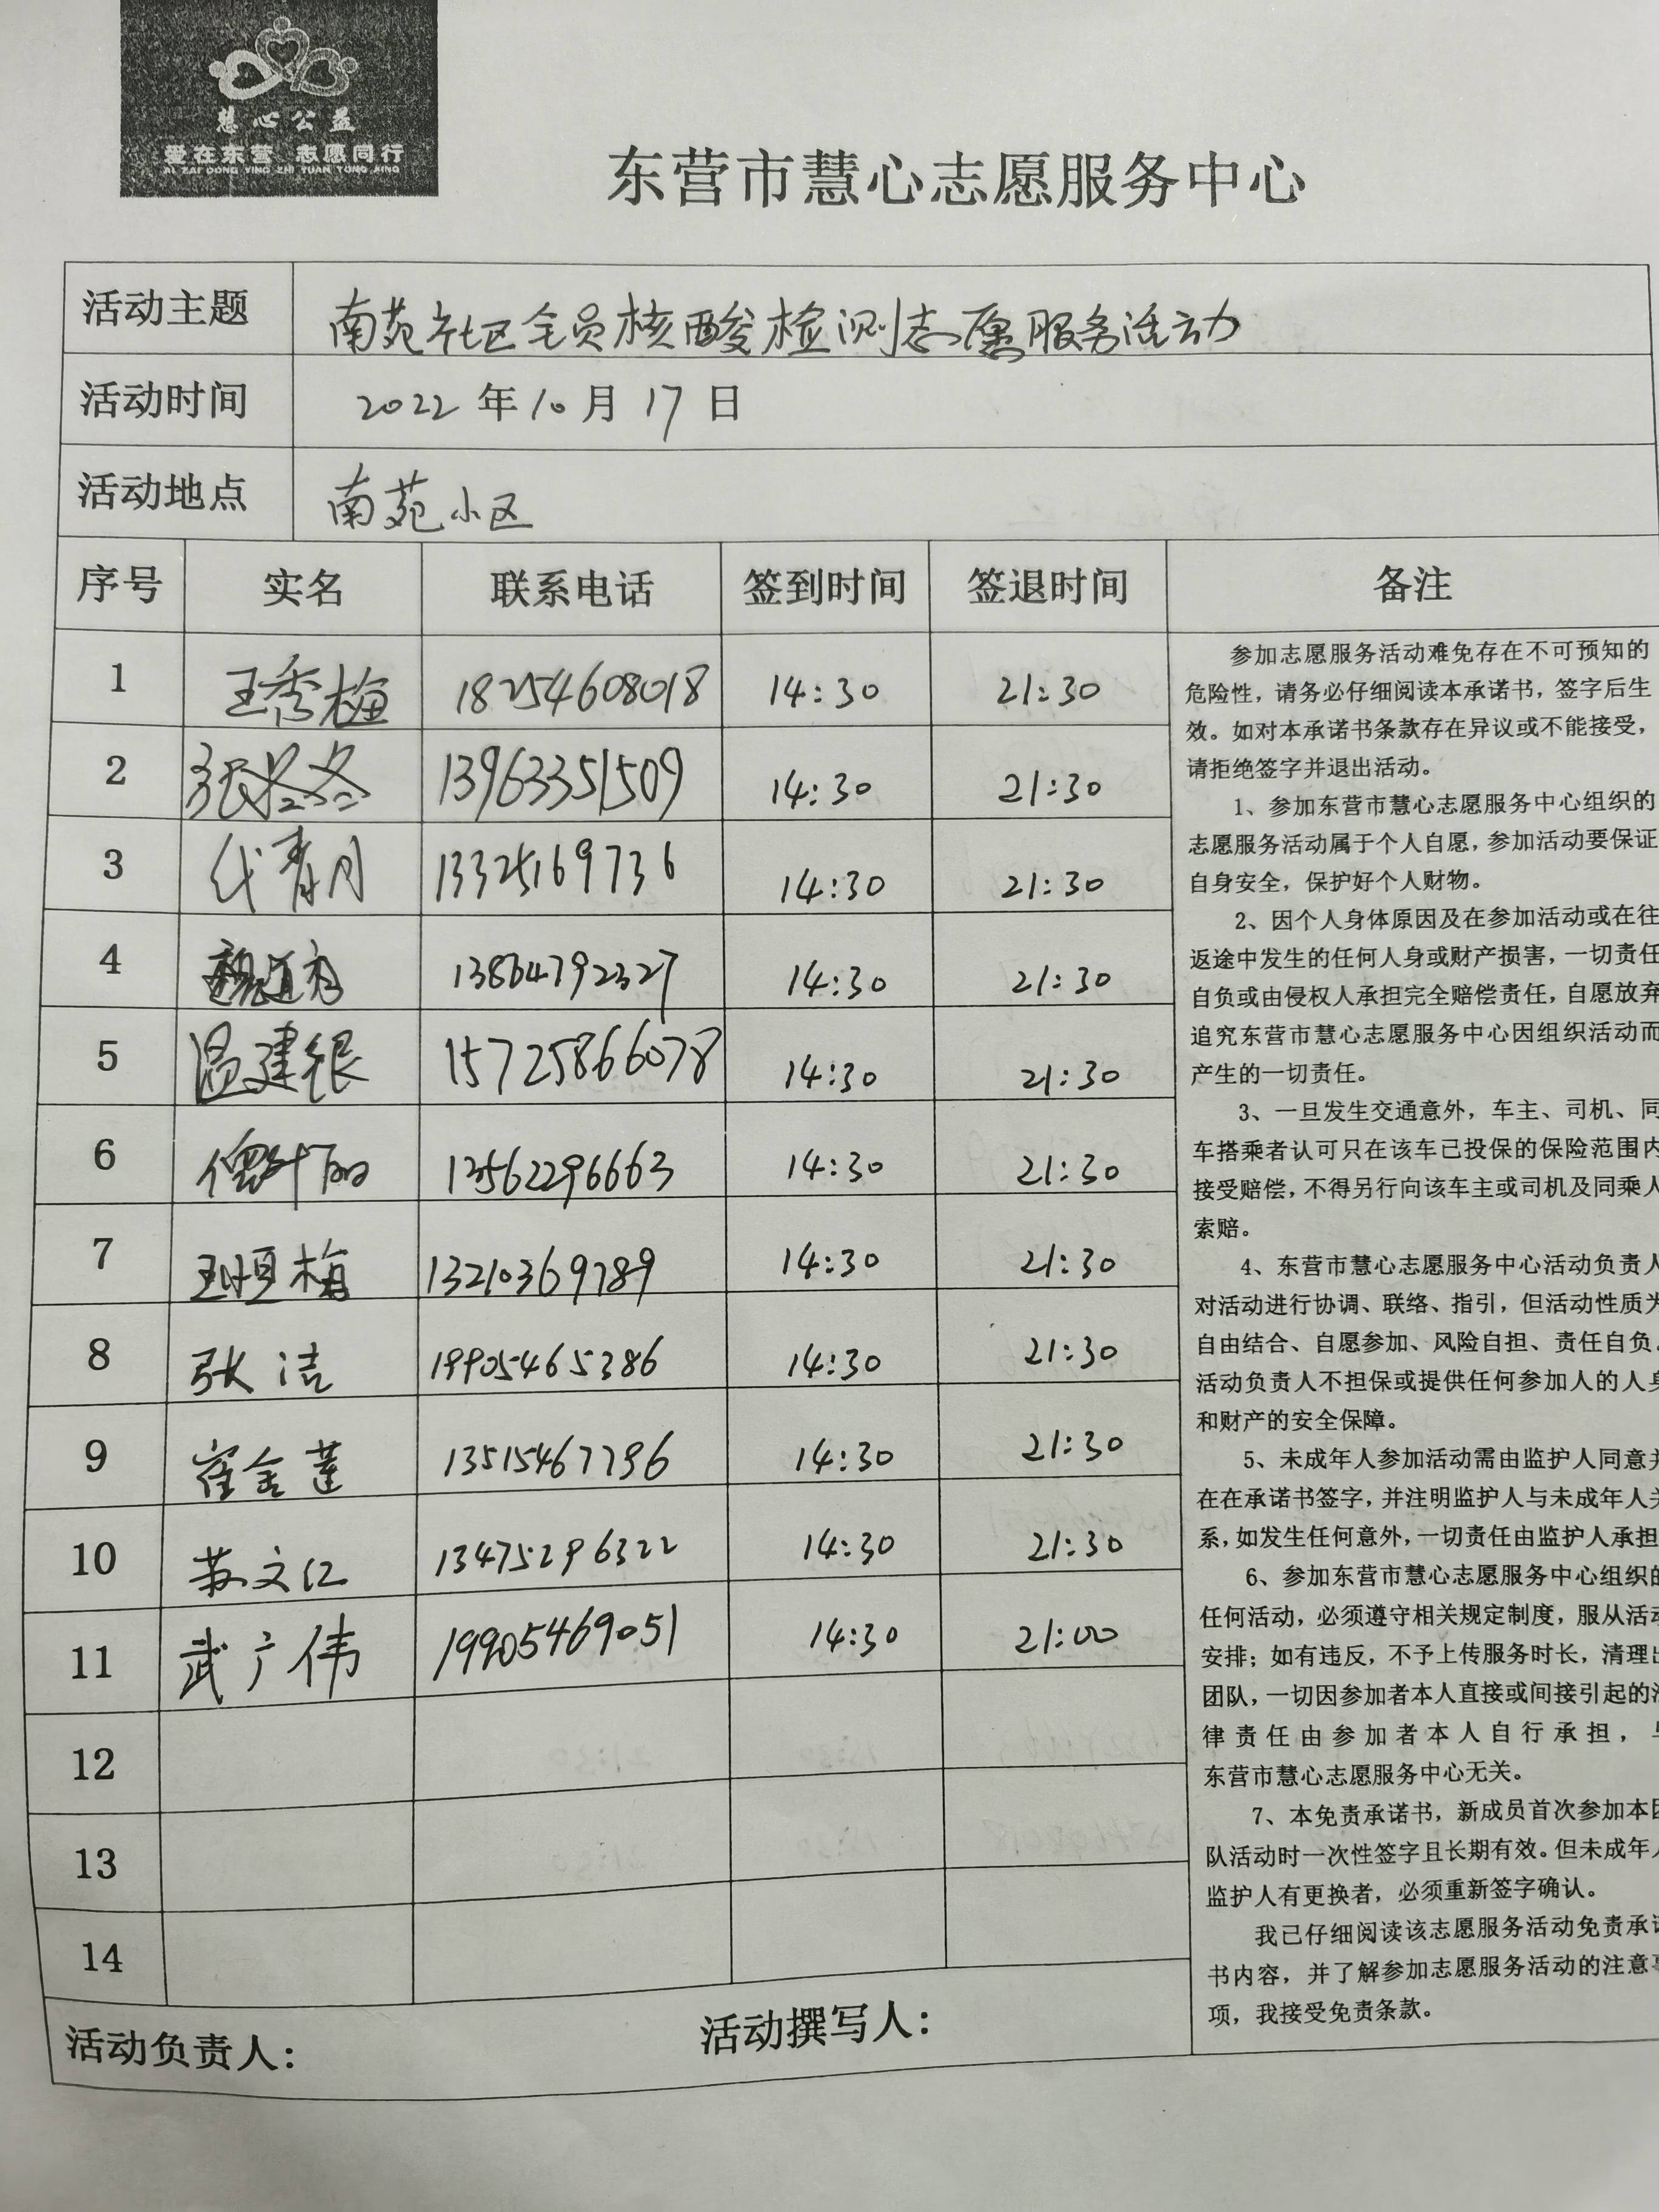 慧心公益
爱在东营 志愿同行
AI ZAI DONG YING ZHI YUAN TONG XING
东营市慧心志愿服务中心
活动主题 南苑社区全员核酸检测志愿服务活动
活动时间 2022年10月17日
活动地点 南苑小区
序号 实名 联系电话 签到时间 签退时间 备注
1 王秀梅 18254608018 14:30 21:30
2 张冬冬 13963351509 14:30 21:30
3 代青月 13325169736 14:30 21:30
4 14:30 21:30
5 温建银 15725866078 14:30 21:30
6 13562296663 14:30 21:30
7 王恒梅 13210369789 14:30 21:30
8 张洁 19905465386 14:30 21:30
9 崔金莲 13515467796 14:30 21:30
10 苏文红 13475296322 14:30 21:30
11 武广伟 19905469051 14:30 21:00
12
13
14
活动负责人： 活动撰写人：
参加志愿服务活动难免存在不可预知的
危险性，请务必仔细阅读本承诺书，签字后生
效。如对本承诺书条款存在异议或不能接受，
请拒绝签字并退出活动。
1、参加东营市慧心志愿服务中心组织的
志愿服务活动属于个人自愿，参加活动要保证
自身安全，保护好个人财物。
2、因个人身体原因及在参加活动或在往
返途中发生的任何人身或财产损害，一切责任
自负或由侵权人承担完全赔偿责任，自愿放弃
追究东营市慧心志愿服务中心因组织活动而
产生的一切责任。
3、一旦发生交通意外，车主、司机、同
车搭乘者认可只在该车已投保的保险范围内
接受赔偿，不得另行向该车主或司机及同乘人
索赔。
4、东营市慧心志愿服务中心活动负责人
对活动进行协调、联络、指引，但活动性质为
自由结合、自愿参加、风险自担、责任自负。
活动负责人不担保或提供任何参加人的人身
和财产的安全保障。
5、未成年人参加活动需由监护人同意并
在在承诺书签字，并注明监护人与未成年人关
系，如发生任何意外，一切责任由监护人承担
6、参加东营市慧心志愿服务中心组织的
任何活动，必须遵守相关规定制度，服从活动
安排；如有违反，不予上传服务时长，清理出
团队，一切因参加者本人直接或间接引起的法
律责任由参加者本人自行承担，与
东营市慧心志愿服务中心无关。
7、本免责承诺书，新成员首次参加本团
队活动时一次性签字且长期有效。但未成年人
监护人有更换者，必须重新签字确认。
我已仔细阅读该志愿服务活动免责承诺
书内容，并了解参加志愿服务活动的注意事
项，我接受免责条款。